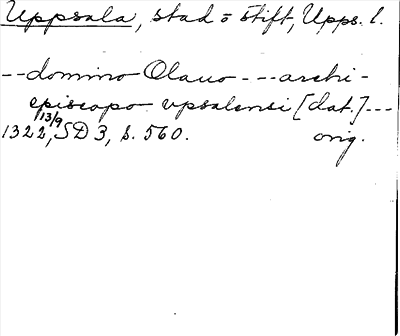 Uppsala, stad o stift, Upps. l.
--domino Olauo---archi-
episcopo vpsalensi [dat.]---
1322 13/9, SD 3, s. 560. orig.